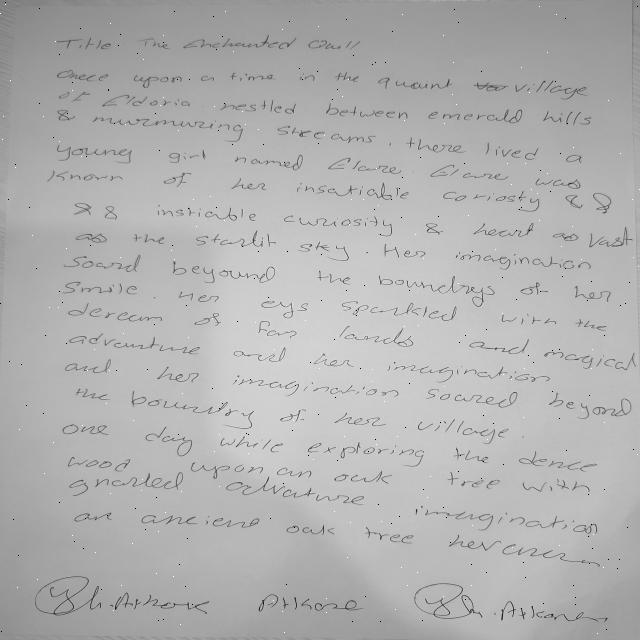 Title: The Enchanted Quill
Onece upon a time in the quaunt village
of Eldoria nestled between emerald hills
& murmuring streams. there lived a
young girl named Elare. Elare was
known of her insatiable coriosty & &
& & instiable curiosity & heart as vast
as the starlit sky. Her imagination
Soard beyound the boundrys of her
Smile. Her eys sparkled with the
deream of far lands and magical
advanture and her imagination
and her imagination soared beyond
the boundry of her village.
one day while exploring the dence
wood upon an oak tree with
gnarled advature imagination
an anciene oak tree
Atkare